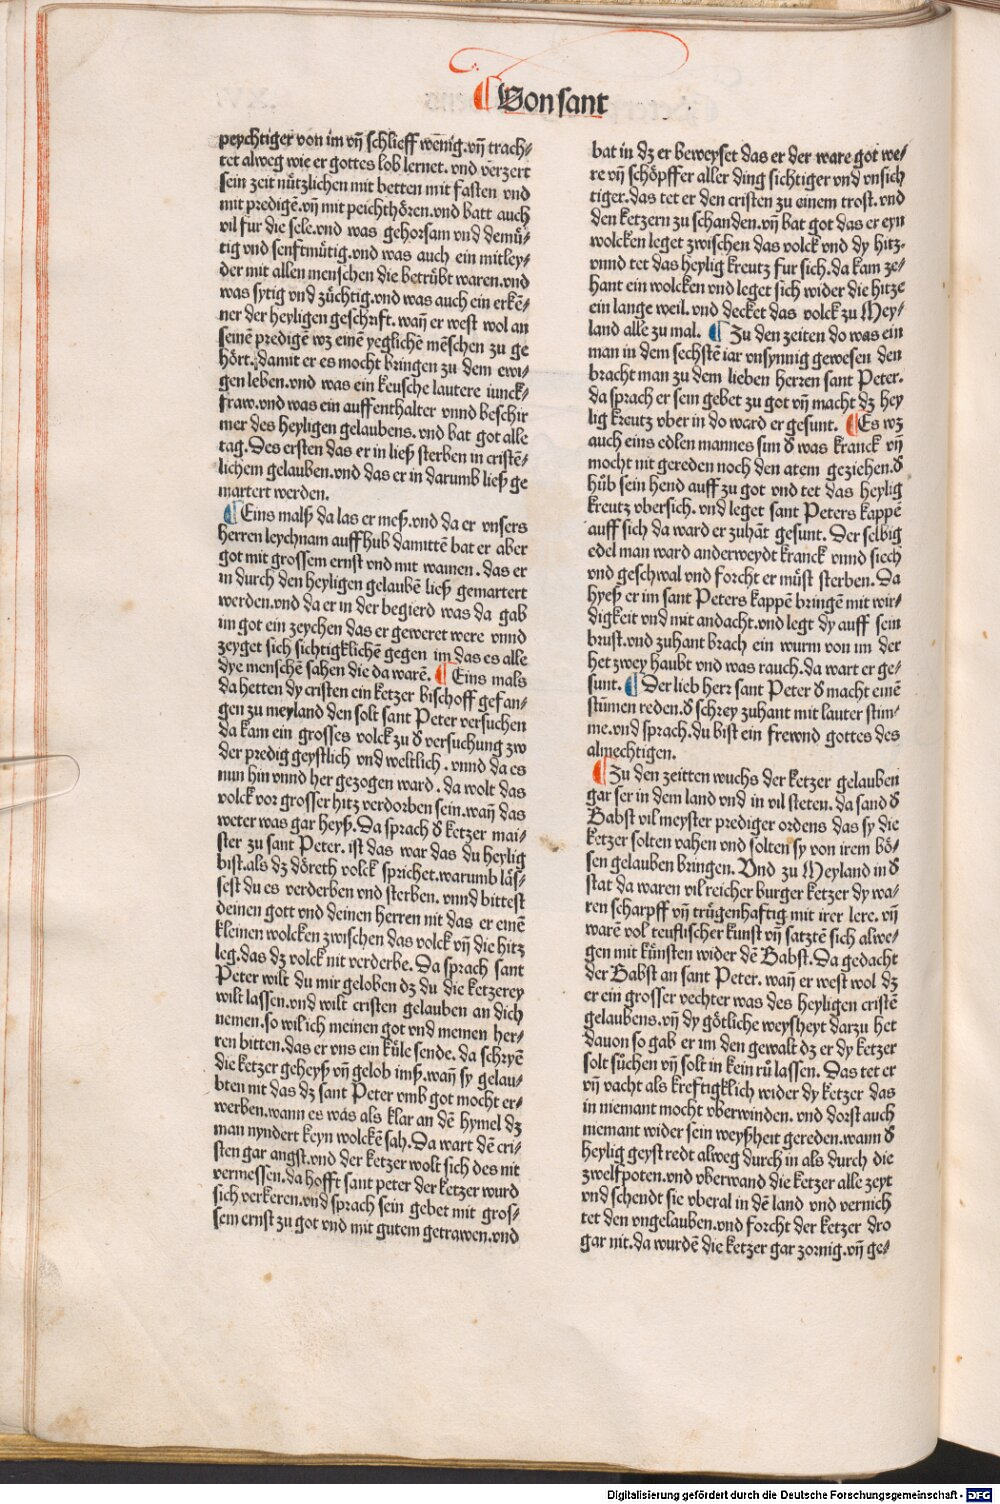 Von sant
peychtiger von im vñ schlieff wenig. vñ trach⸗
tet alweg wie er gottes lob lernet. vnd verzert
sein zeit nützlichen mit betten mit fasten vnd
mit predigẽ. vñ mit peichthören. vnd batt auch
vil fur die sele. vnd was gehorsam vnd demü⸗
tig vnd senftmütig. vnd was auch ein mitley⸗
der mit allen menschen die betrübt waren. vnd
was sytig vnd züchtig. vnd was auch ein erkẽ⸗
ner der heyligen geschrift. wañ er west wol an
seinẽ predigẽ wz einẽ yeglichẽ mẽschen zu ge
hört. damit er es mocht bringen zu dem ewi⸗
gen leben. vnd was ein keusche lautere iunck⸗
fraw. vnd was ein auffenthalter vnnd beschir
mer des heyligen gelaubens. vnd bat got alle
tag. Des ersten das er in ließ sterben in cristẽ⸗
lichem gelauben. vnd das er in darumb ließ ge
martert werden.
Eins malß da las er meß. vnd da er vnsers
herren leychnam auffhub damittẽ bat er aber
got mit grossem ernst vnd mit wainen. das er
in durch den heyligen gelaubẽ ließ gemartert
werden. vnd da er in der begierd was da gab
im got ein zeychen das er geweret were vnnd
zeyget sich sichtigklichẽ gegen im das es alle
dye menschẽ sahen die da warẽ. Eins mals
da hetten dy cristen ein ketzer bischoff gefan⸗
gen zu meyland den solt sant Peter versuchen
da kam ein grosses volck zu d̕ versuchung zw
der predig geystlich vnd weltlich. vnnd da es
nun hin vnnd her gezogen ward. da wolt das
volck vor grosser hitz verdorben sein. wañ das
weter was gar heyß. Da sprach d̕ ketzer mai⸗
ster zu sant Peter. ist das war das du heylig
bist. als dz döreth volck sprichet. warumb läs⸗
sest du es verderben vnd sterben. vnnd bittest
deinen gott vnd deinen herren nit das er einẽ
kleinen wolcken zwischen das volck vñ die hitz
leg. das dz volck nit verderbe. Da sprach sant
Peter wilt du mir geloben dz du die ketzerey
wilt lassen. vnd wilt cristen gelauben an dich
nemen. so wil ich meinen got vnd meinen her⸗
ren bitten. das er vns ein küle sende. da schryẽ
die ketzer geheyß vñ gelob imß. wañ sy gelau⸗
bten nit das dz sant Peter vmb got mocht er⸗
werben. wann es was als klar an dẽ hymel dz
man nyndert keyn wolckẽ sah. Da wart dẽ cri⸗
sten gar angst. vnd der ketzer wolt sich des nit
vermessen. da hofft sant peter der ketzer wurd
sich verkeren. vnd sprach sein gebet mit gros⸗
sem ernst zu got vnd mit gutem getrawen. vnd
bat in dz er beweyset das er der ware got we⸗
re vñ schöpffer aller ding sichtiger vnd vnsich
tiger. das tet er den cristen zu einem trost. vnd
den ketzern zu schanden. vñ bat got das er eyn
wolcken leget zwischen das volck vnd dy hitz.
vnnd tet das heylig kreutz fur sich. da kam ze⸗
hant ein wolcken vnd leget sich wider die hitze
ein lange weil. vnd decket das volck zu Mey⸗
land alle zu mal. Zu den zeiten do was ein
man in dem sechstẽ iar vnsynnig gewesen den
bracht man zu dem lieben herren sant Peter.
da sprach er sein gebet zu got vñ macht dz hey
lig kreutz vber in do ward er gesunt. Es wz
auch eins edlen mannes sun d̕ was kranck vñ
mocht nit gereden noch den atem geziehen. d̕
hůb sein hend auff zu got vnd tet das heylig
kreutz vbersich. vnd leget sant Peters kappẽ
auff sich da ward er zuhãt gesunt. Der selbig
edel man ward anderweydt kranck vnnd siech
vnd geschwal vnd forcht er müst sterben. Da
hyeß er im sant Peters kappẽ bringẽ mit wir⸗
digkeit vnd mit andacht. vnd legt dy auff sein
brust. vnd zuhant brach ein wurm von im der
het zwey haubt vnd was rauch. da wart er ge⸗
sunt. Der lieb herr sant Peter d̕ macht einẽ
stũmen reden. d̕ schrey zuhant mit lauter stim⸗
me. vnd sprach. du bist ein frewnd gottes des
almechtigen.
Zu den zeitten wuchs der ketzer gelauben
gar ser in dem land vnd in vil steten. da sand d̕
Babst vil meyster prediger ordens das sy die
ketzer solten vahen vnd solten sy von irem bö⸗
sen gelauben bringen. Vnd zu Meyland in d̕
stat da waren vil reicher burger ketzer dy wa⸗
ren scharpff vñ trügenhaftig mit irer lere. vñ
warẽ vol teuflischer kunst vñ satztẽ sich alwe⸗
gen mit künsten wider dẽ Babst. Da gedacht
der Babst an sant Peter. wañ er west wol dz
er ein grosser vechter was des heyligen cristẽ
gelaubens. vñ dy götliche weysheyt darzu het
dauon so gab er im den gewalt dz er dy ketzer
solt süchen vñ solt in kein rů lassen. Das tet er
vñ vacht als kreftigklich wider dy ketzer das
in niemant mocht vberwinden. vnd dorst auch
niemant wider sein weyßheit gereden. wann d̕
heylig geyst redt alweg durch in als durch die
zwelfpoten. vnd vberwand die ketzer alle zeyt
vnd schendt sie vberal in dẽ land vnd vernich
tet den vngelauben. vnd forcht der ketzer dro
gar nit. da wurdẽ die ketzer gar zornig. vñ ge⸗
Digitalisierung gefördert durch die Deutsche Forschungsgemeinschaft - DFG